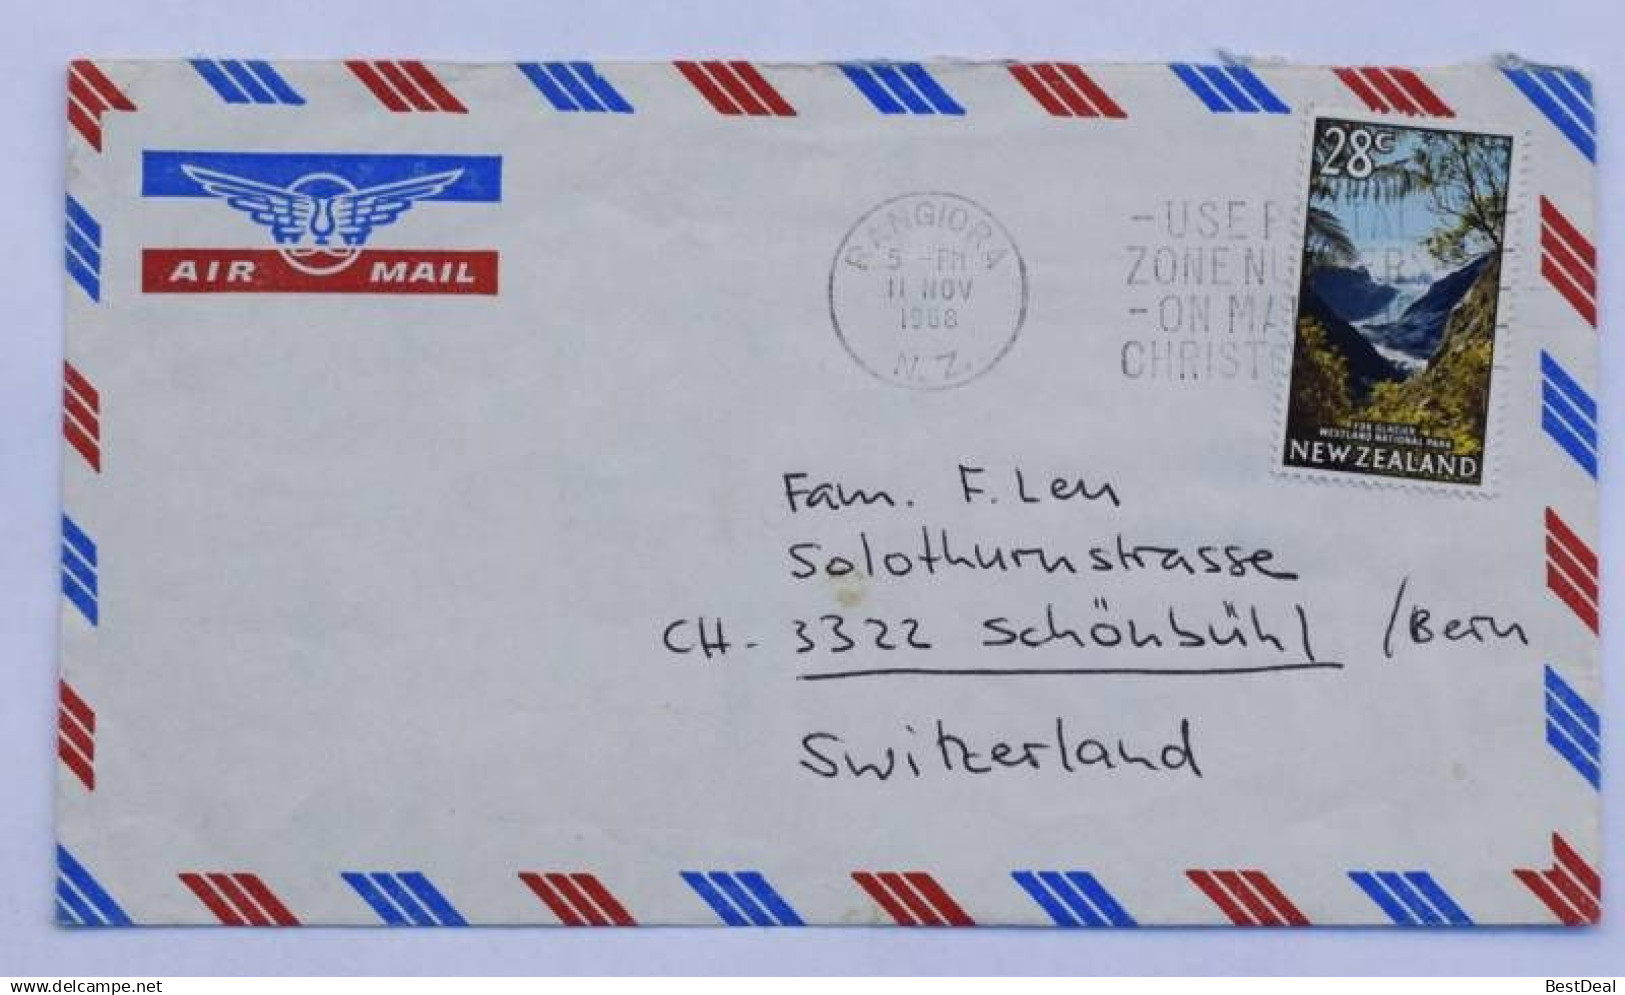 AIR MAIL
RANGIORA
5 -PM
11 NOV
1968
N.Z.
-USE P
ZONE NU
-ON MA
CHRISTC
28c
FOX GLACIER
WESTLAND NATIONAL PARK
NEW ZEALAND
Fam. F. Leu
Solothurnstrasse
CH- 3322 Schönbühl /Bern
Switzerland
www.delcampe.net
BestDeal